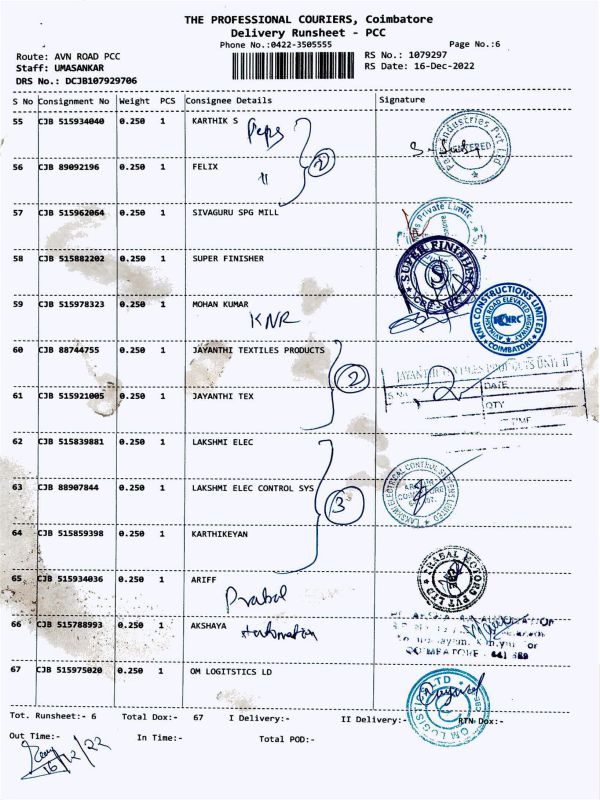 THE PROFESSIONAL COURIERS, Coimbatore
Delivery Runsheet - PCC
Phone No.:0422-3505555 Page No.:6
Route: AVN ROAD PCC RS No.: 1079297
Staff: UMASANKAR RS Date: 16-Dec-2022
DRS No.: DCJB107929706
S No Consignment No Weight PCS Consignee Details Signature
55 CJB 515934040 0.250 1 KARTHIK S
Peps
56 CJB 89092196 0.250 1 FELIX
" 2
57 CJB 515962064 0.250 1 SIVAGURU SPG MILL
58 CJB 515882202 0.250 1 SUPER FINISHER
SUPER FINISHER
S
59 CJB 515978323 0.250 1 MOHAN KUMAR
KNR
KNR CONSTRUCTIONS LIMITED
AVINASHI ROAD ELEVATED HIGHWAY
KNRC
COIMBATORE
60 CJB 88744755 0.250 1 JAYANTHI TEXTILES PRODUCTS
2
JAYANTHI TEXTILES PRODUCTS UNIT II
S No. DATE
QTY
TIME
61 CJB 515921005 0.250 1 JAYANTHI TEX
62 CJB 515839881 0.250 1 LAKSHMI ELEC
63 CJB 88907844 0.250 1 LAKSHMI ELEC CONTROL SYS
3
LAKSHMI ELECTRICAL CONTROL SYSTEMS LIMITED
64 CJB 515859398 0.250 1 KARTHIKEYAN
65 CJB 515934036 0.250 1 ARIFF
Prabal
PRABAL MOTORS PVT LTD
CBE
66 CJB 515788993 0.250 1 AKSHAYA
Automation
COIMBATORE
67 CJB 515975020 0.250 1 OM LOGITSTICS LD
OM LOGISTICS LTD
Tot. Runsheet:- 6 Total Dox:- 67 I Delivery:- II Delivery:- RTN Dox:-
Out Time:- In Time:- Total POD:-
16/12/22